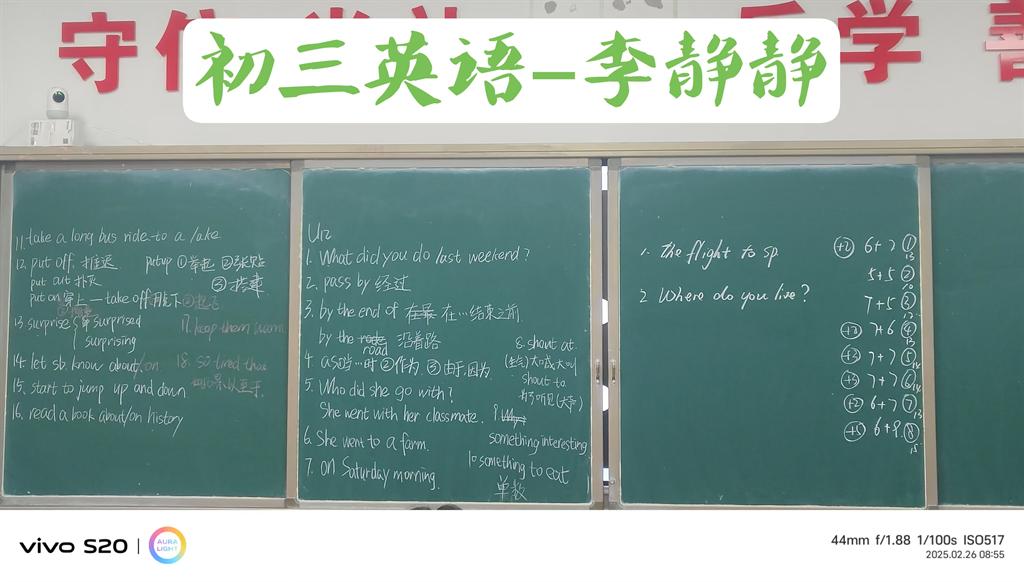 守信
学
善
初三英语-李静静
11. take a long bus ride to a lake
12. put off 推迟 put up ①举起 ②张贴
put out 扑灭 ③搭建
put on 穿上 — take off 脱下 ②起飞
13. surprise { surprised
surprising
17. keep them warm
14. let sb. know about/on
18. so tired that
如此…以至于
15. start to jump up and down
16. read a book about/on history
U12
1. What did you do last weekend?
2. pass by 经过
3. by the end of 在…结束之前
by the road 沿着路
4. as 当…时 ②作为 ③由于,因为
5. Who did she go with?
She went with her classmate.
6. She went to a farm.
7. on Saturday morning.
8. shout at
大喊或大叫
shout to
9
something interesting
10 something to eat
单数
1. the flight to sp
2 Where do you live?
+2 6+7 ①
13
5+5 ②
10
7+5 ③
12
+3 7+6 ④
13
+3 7+7 ⑤
14
+3 7+7 ⑥
14
+2 6+7 ⑦
13
6+9 ⑧
15
vivo S20
AURA LIGHT
44mm f/1.88 1/100s ISO517
2025.02.26 08:55